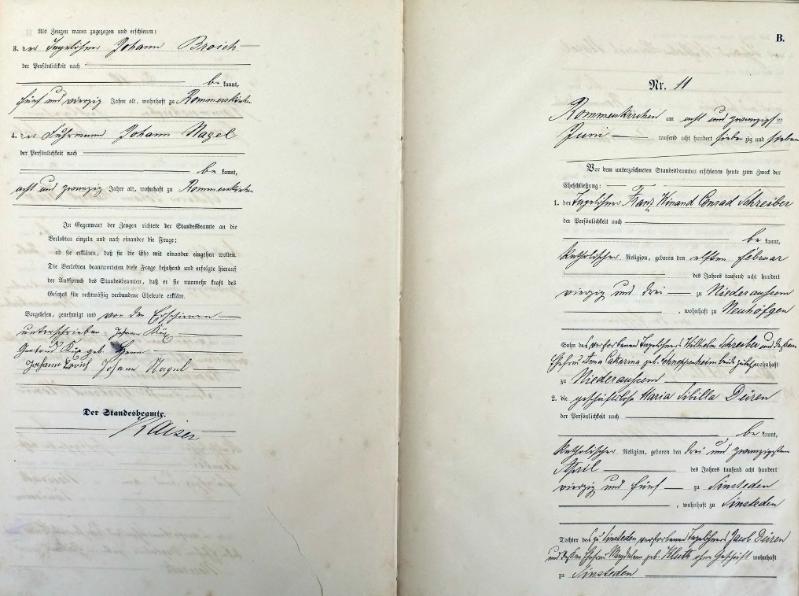 Als Zeugen waren zugezogen und erschienen:
3. der Tagelöhner Johann Broich
der Persönlichkeit nach
be kannt,
fünf und vierzig Jahre alt, wohnhaft zu Rommerskirchen
4. der Fuhrmann Johann Nagel
der Persönlichkeit nach
be kannt,
acht und zwanzig Jahre alt, wohnhaft zu Rommerskirchen
In Gegenwart der Zeugen richtete der Standesbeamte an die
Verlobten einzeln und nach einander die Frage:
ob sie erklären, daß sie die Ehe mit einander eingehen wollen.
Die Verlobten beantworteten diese Frage bejahend und erfolgte hierauf
der Ausspruch des Standesbeamten, daß er sie nunmehr kraft des
Gesetzes für rechtmäßig verbundene Eheleute erkläre.
Vorgelesen, genehmigt und von den Erschienenen
unterschrieben Johann
Gertrud geb.
Johann Broich Johann Nagel
Der Standesbeamte.
Kaiser
B.
Nr. 11
Rommerskirchen am acht und zwanzigsten
Juni tausend acht hundert sieben zig und sieben
Vor dem unterzeichneten Standesbeamten erschienen heute zum Zweck der
Eheschließung:
1. der Tagelöhner Franz Conrad Schreiber
der Persönlichkeit nach
be kannt,
katholischer Religion, geboren den elften Februar
des Jahres tausend acht hundert
vierzig und drei zu Niederaussem
, wohnhaft zu Neuhöfgen
Sohn des verstorbenen Tagelöhners Wilhelm Schreiber und dessen
Ehefrau Anna Catharina geb. beide zuletzt wohnhaft
zu Niederaussem
2. die geschäftslose Maria Sibilla Düren
der Persönlichkeit nach
be kannt,
katholischer Religion, geboren den drei und zwanzigsten
April des Jahres tausend acht hundert
vierzig und fünf zu Sinsteden
, wohnhaft zu Sinsteden
Tochter des zu Sinsteden verstorbenen Tagelöhners Jacob Düren
und dessen Ehefrau Magdalena geb. ohne Geschäft wohnhaft
zu Sinsteden